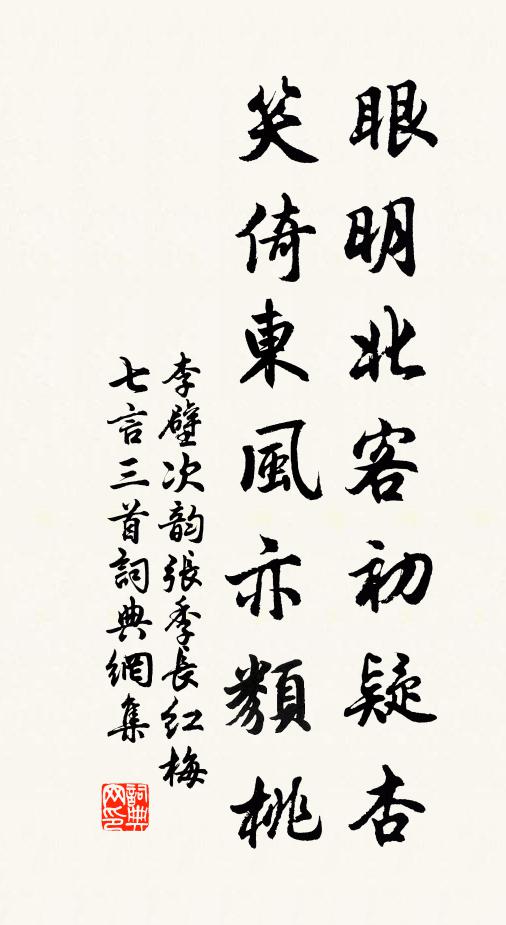 眼明北客初疑杏
笑倚東風亦類桃
李壁次韵張季長紅梅
七言三首詞典網集
詞典网印